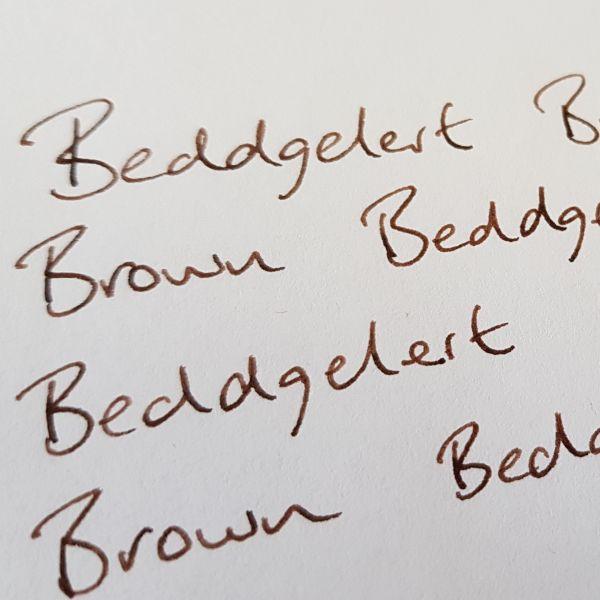 Beddgelert B
Brown Beddge
Beddgelert
Brown Bedd